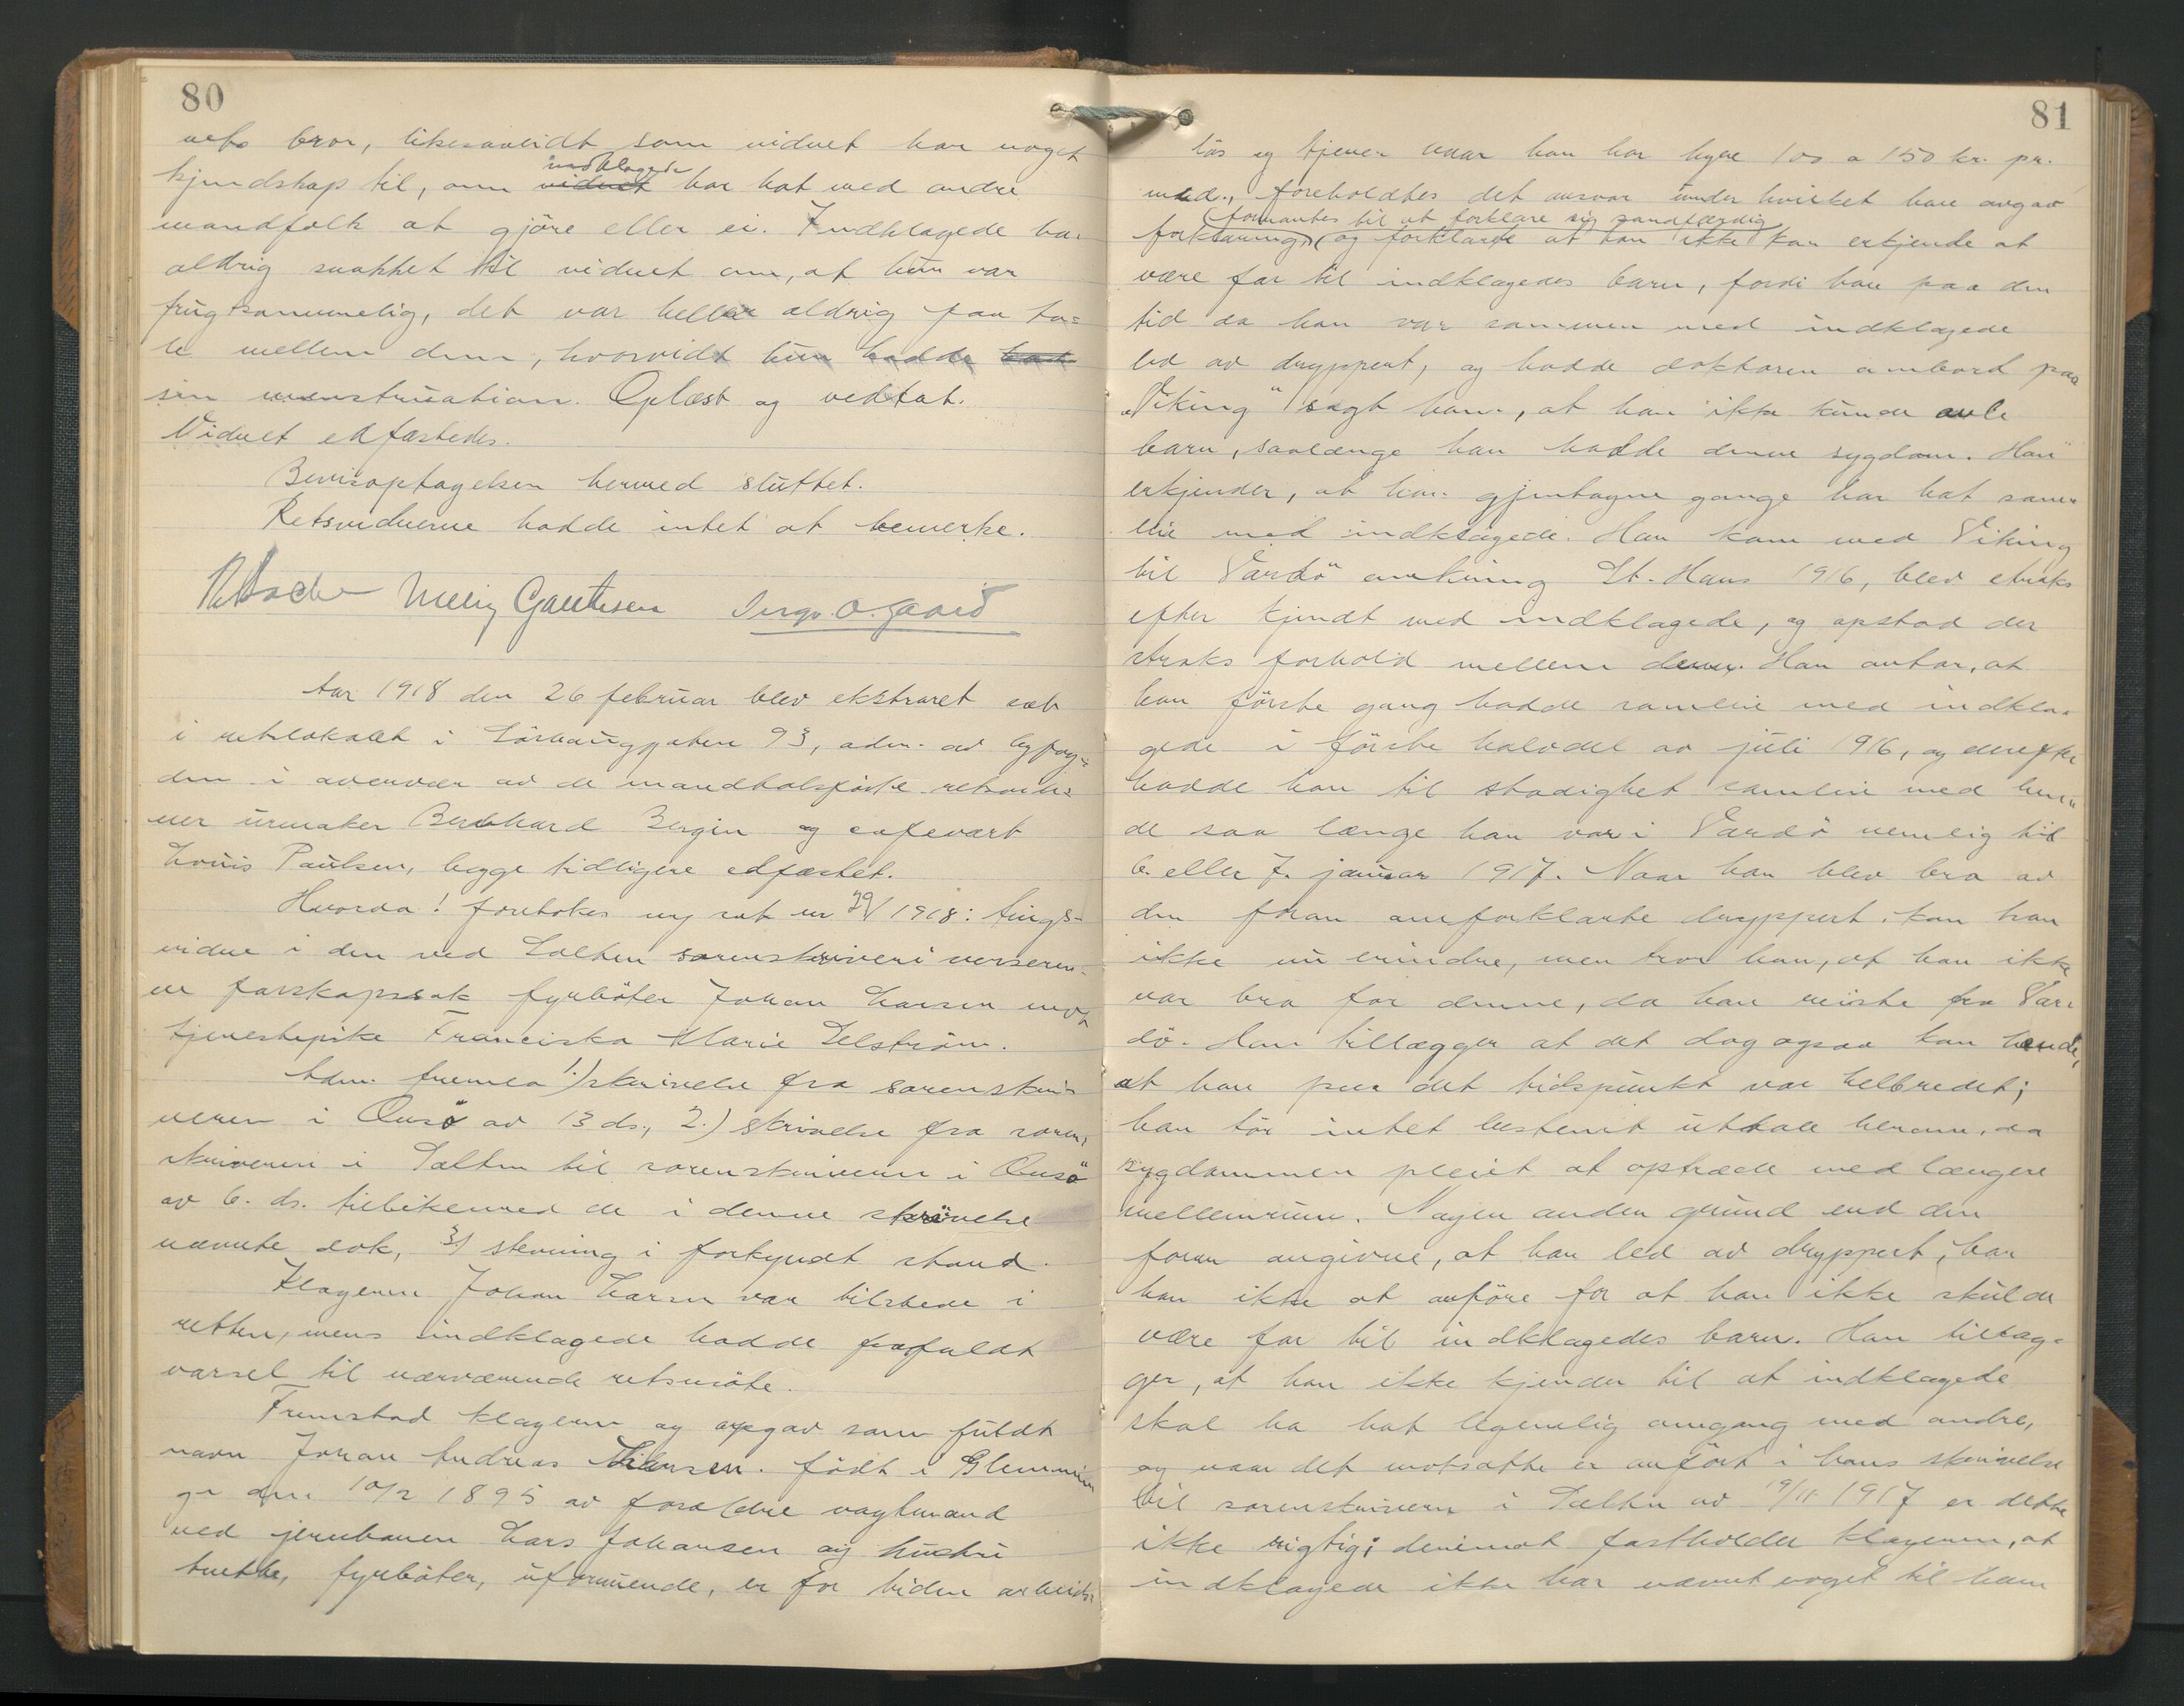 80
bror, likesaavidt som vidnet har noget
kjendskap til, om indklagede vidnet har hat med andre
mandfolk at gjöre eller ei. Indklagede ha-
aldrig snakket til vidnet om, at hun var
frugtsommelig, det var heller aldrig paa ta=
le mellem dem, hvorvidt hun hadde hat
sin menstruation. Oplæst og vedtat.
Vidnet edfæstedes.
Bevisoptagelsen hermed sluttet.
Retsvidnerne hadde intet at bemerke.
Gautesen O. Gaard
Aar 1918 den 26 februar blev ekstraret sat
i retslokalet i 93, adm. av byfog-
den i overvær av de mandtalsförte retsvid=
ner urmaker Bernhard Bergin og cafevært
Louis Paulsen, begge tidligere edfæstet.
Hvorda! foretokes ny sak nr 29/1918: tings-
vidne i den ved Salten sorenskriveri verseren-
de farskapssak fyrböter Johan Larsen mot
tjenestepike Franciska Marie Selström.
Adm. fremla 1.) skrivelse fra sorenskri-
veren i Onsö av 13 ds., 2.) skrivelse fra soren-
skriveren i Salten til sorenskriveren i Onsö
av 6. ds. tillikemed de i denne skrivelse
nævnte dok, 3) stevning i forkyndt stand.
Klageren Johan Larsen var tilstede i
retten, mens indklagede hadde frafaldt
varsel til nærværende retsmöte.
Fremstod klageren og opgav som fuldt
navn Johan Andreas Larsen. födt i Glemmin
ge den 10/2 1895 av forældre vagtmand
ved jernbanen Lars Johansen og hustru
fyrböter, uformuende, er for tiden arbeids-
81
lös og tjener naar han har hyre 100 a 150 kr. pr.
mnd., foreholdtes det ansvar under hvilket han avgav
(formantes til at forklare sig sandfærdig
forklaring, og forklarte at han ikke kan erkjende at
være far til indklagedes barn, fordi han paa den
tid da han var sammen med indklagede
led av dryppert, og hadde doktoren ombord paa
"Viking" sagt ham, at han ikke kunde avle
barn, saalænge han hadde denne sygdom. Han
erkjender, at han gjentagne gange har hat sam-
leie med indklagede. Han kom med Viking
til Vardö omkring St. Hans 1916, blev straks
efter kjendt med indklagede, og opstod der
straks forhold mellem dem. Han antar, at
han förste gang hadde samleie med indkla=
gede i förste halvdel av juli 1916, og derefter
hadde han til stadighet samleie med hen-
de saa længe han var i Vardö nemlig til
6. eller 7. januar 1917. Naar han blev bra av
den foran omforklarte dryppert, kan han
ikke nu erindre, men tror han, at han ikke
var bra for denne, da han reiste fra Var-
dö. Han tillægger at det dog ogsaa kan hænde,
at han paa det tidspunkt var helbredet;
han tör intet bestemt uttale herom, da
sygdommen pleiet at optræde med længere
mellemrum. Nogen anden grund end den
foran angivne, at han led av dryppert, har
han ikke at anföre for at han ikke skulde
være far til indklagedes barn. Han tillæg=
ger, at han ikke kjender til at indklagede
skal ha hat legemlig omgang med andre,
og naar det motsatte er anfört i hans skrivelse
til sorenskriveren i Salten av 19/11 1917 er dette
ikke rigtig; derimot fastholder klageren, at
indklagede ikke har nævnt noget til ham